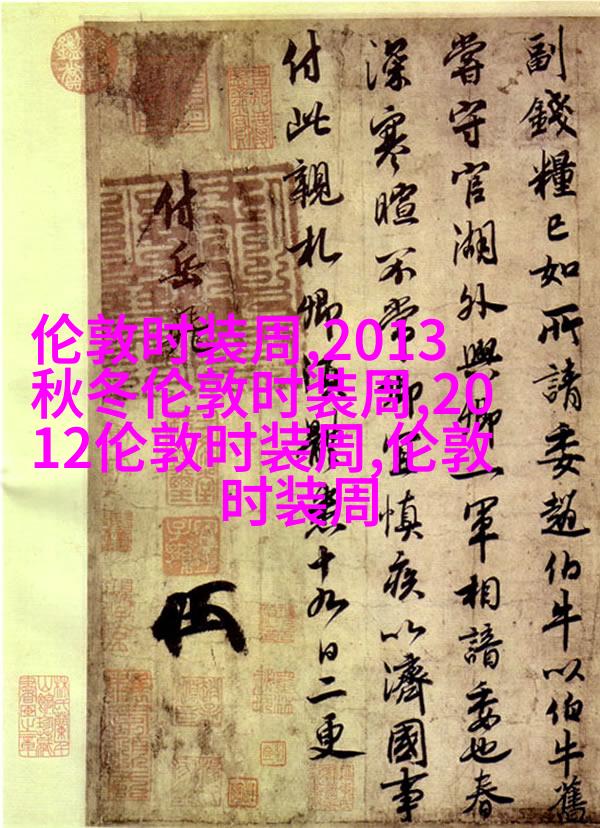 伦敦时装周,2013
秋冬伦敦时装周,20
12伦敦时装周,伦敦
时装周
副錢糧已如所請委趙伯牛以伯牛舊
嘗守官湖外與卿一軍相諳委也春
深寒暄不常卿宜慎疾以濟國事
付此親札卿須體悉十九日二更
付岳飛